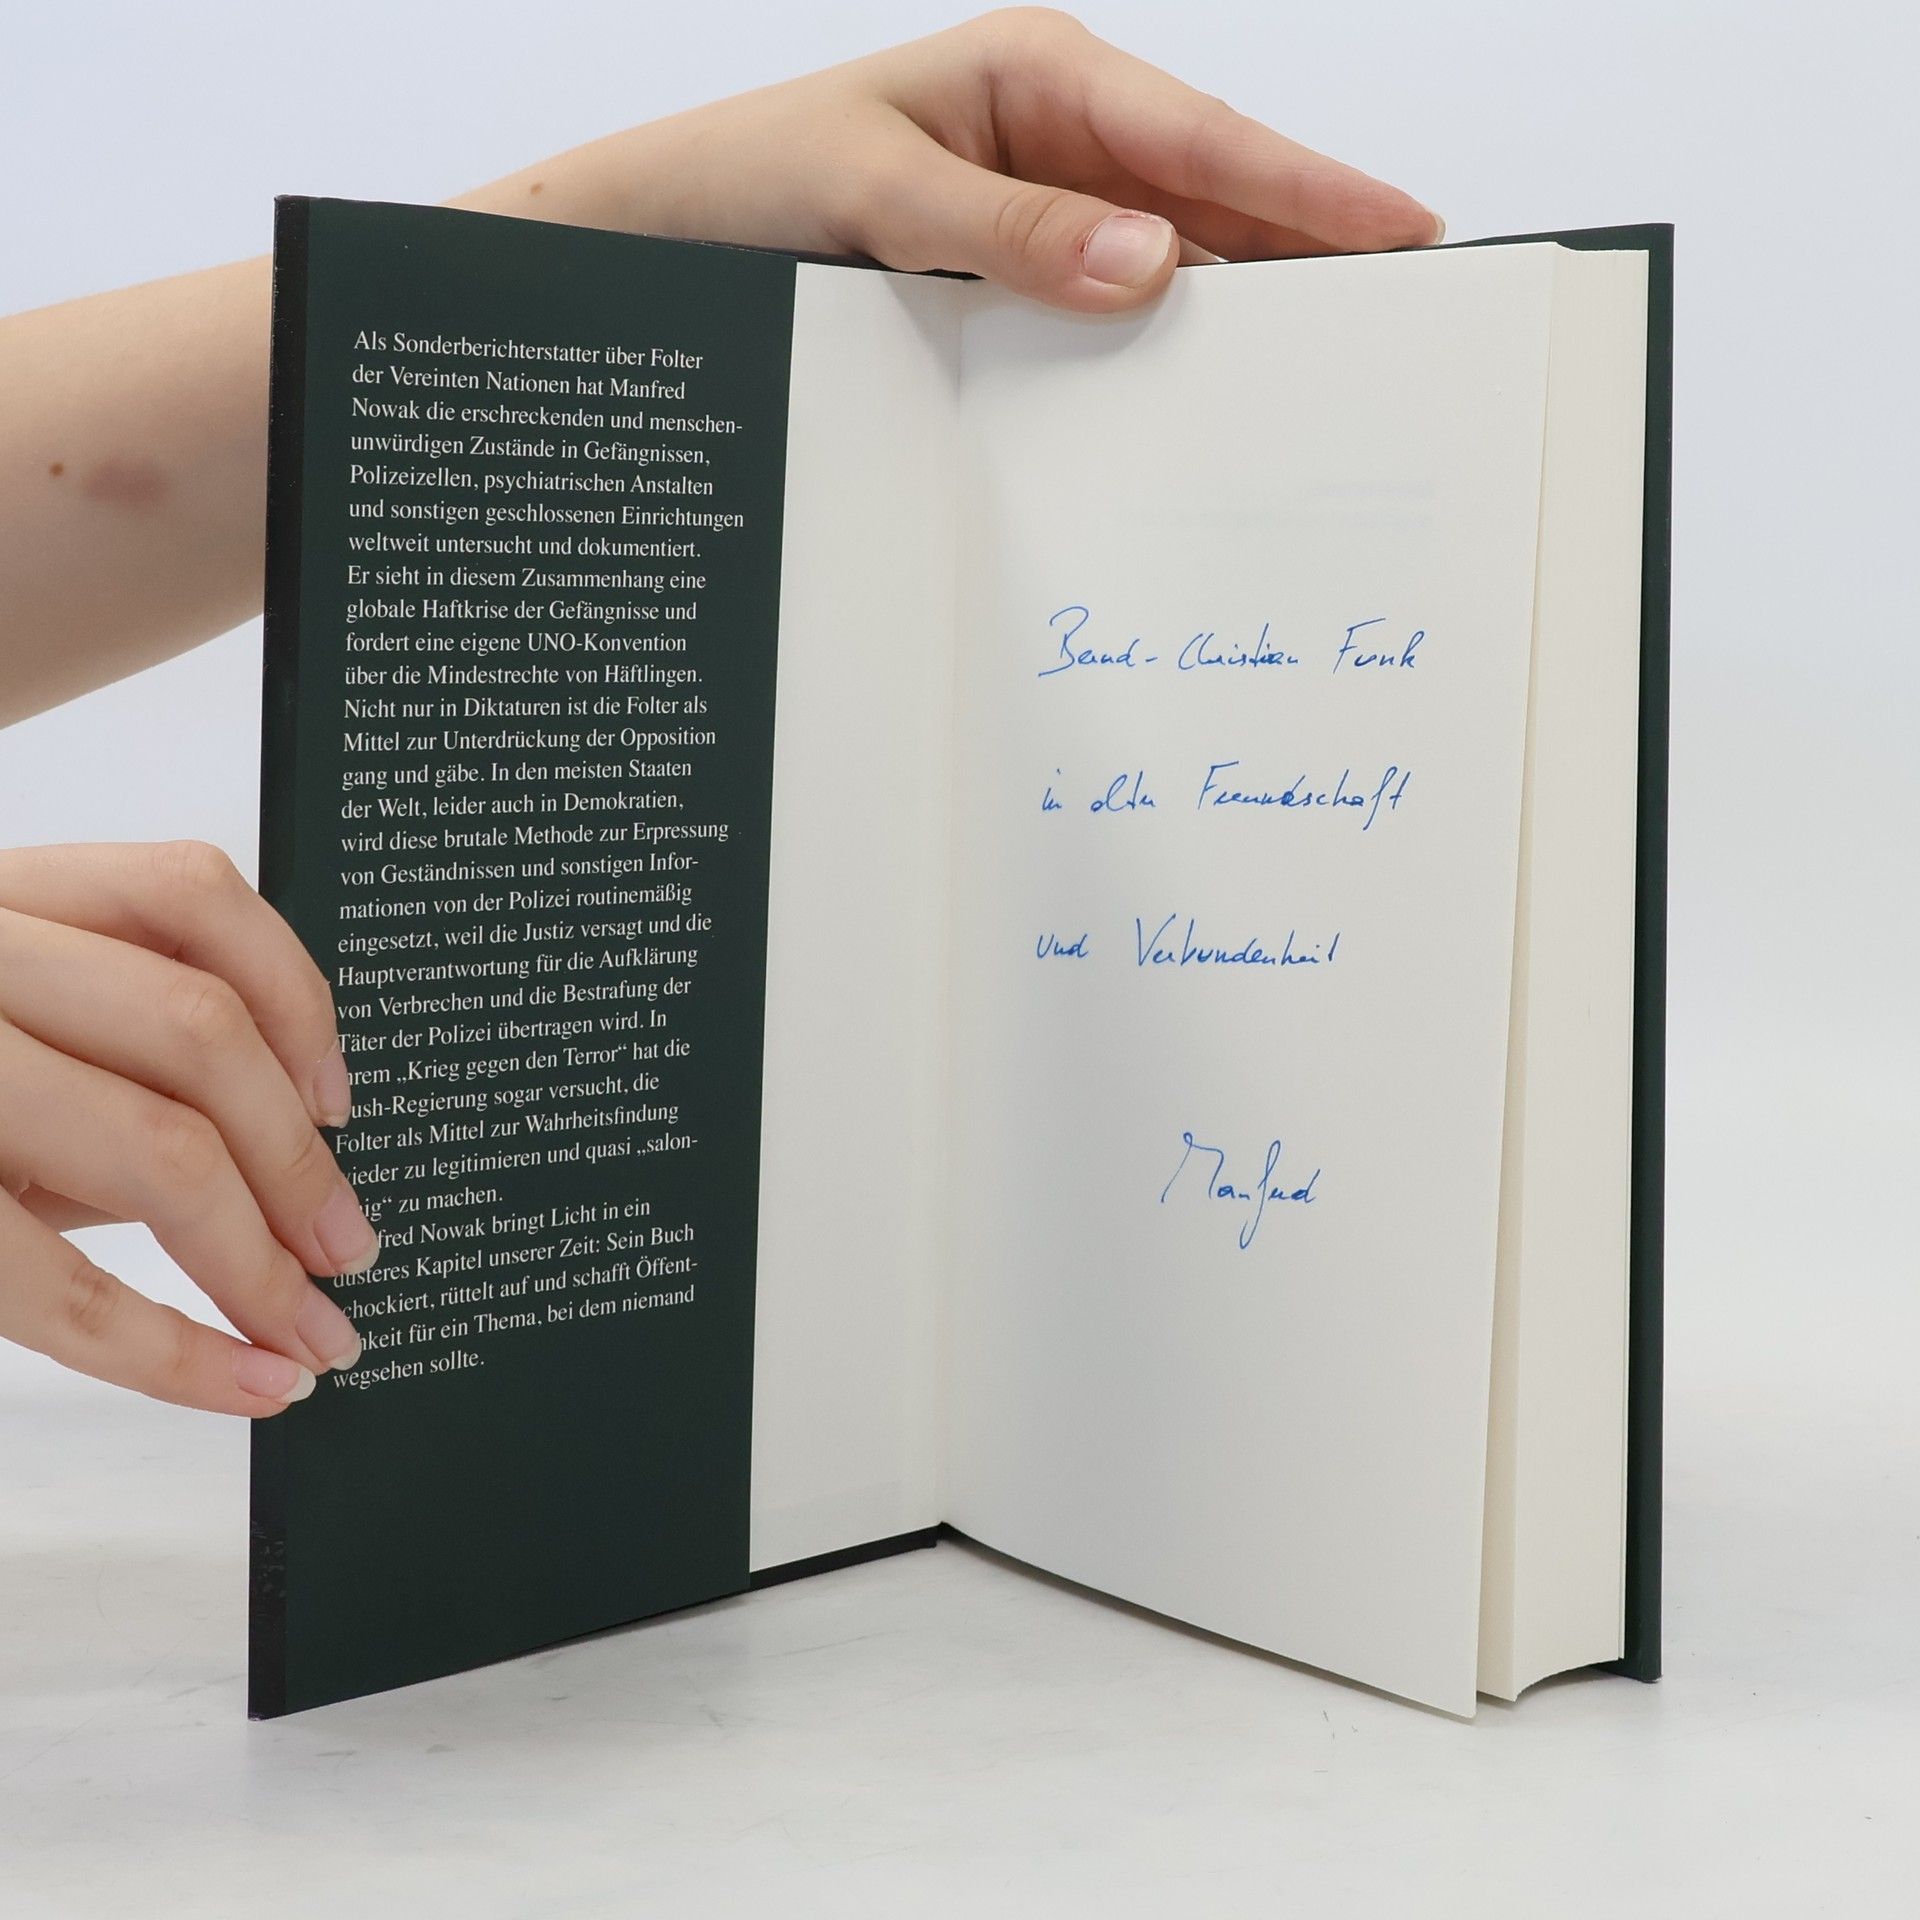 Als Sonderberichterstatter über Folter
der Vereinten Nationen hat Manfred
Nowak die erschreckenden und menschen-
unwürdigen Zustände in Gefängnissen,
Polizeizellen, psychiatrischen Anstalten
und sonstigen geschlossenen Einrichtungen
weltweit untersucht und dokumentiert.
Er sieht in diesem Zusammenhang eine
globale Haftkrise der Gefängnisse und
fordert eine eigene UNO-Konvention
über die Mindestrechte von Häftlingen.
Nicht nur in Diktaturen ist die Folter als
Mittel zur Unterdrückung der Opposition
gang und gäbe. In den meisten Staaten
der Welt, leider auch in Demokratien,
wird diese brutale Methode zur Erpressung
von Geständnissen und sonstigen Infor-
mationen von der Polizei routinemäßig
eingesetzt, weil die Justiz versagt und die
Hauptverantwortung für die Aufklärung
von Verbrechen und die Bestrafung der
Täter der Polizei übertragen wird. In
hrem „Krieg gegen den Terror“ hat die
ush-Regierung sogar versucht, die
Folter als Mittel zur Wahrheitsfindung
wieder zu legitimieren und quasi „salon-
ig“ zu machen.
fred Nowak bringt Licht in ein
düsteres Kapitel unserer Zeit: Sein Buch
chockiert, rüttelt auf und schafft Öffent-
hkeit für ein Thema, bei dem niemand
wegsehen sollte.
Bernd-Christian Funk
in alter Freundschaft
und Verbundenheit
Manfred